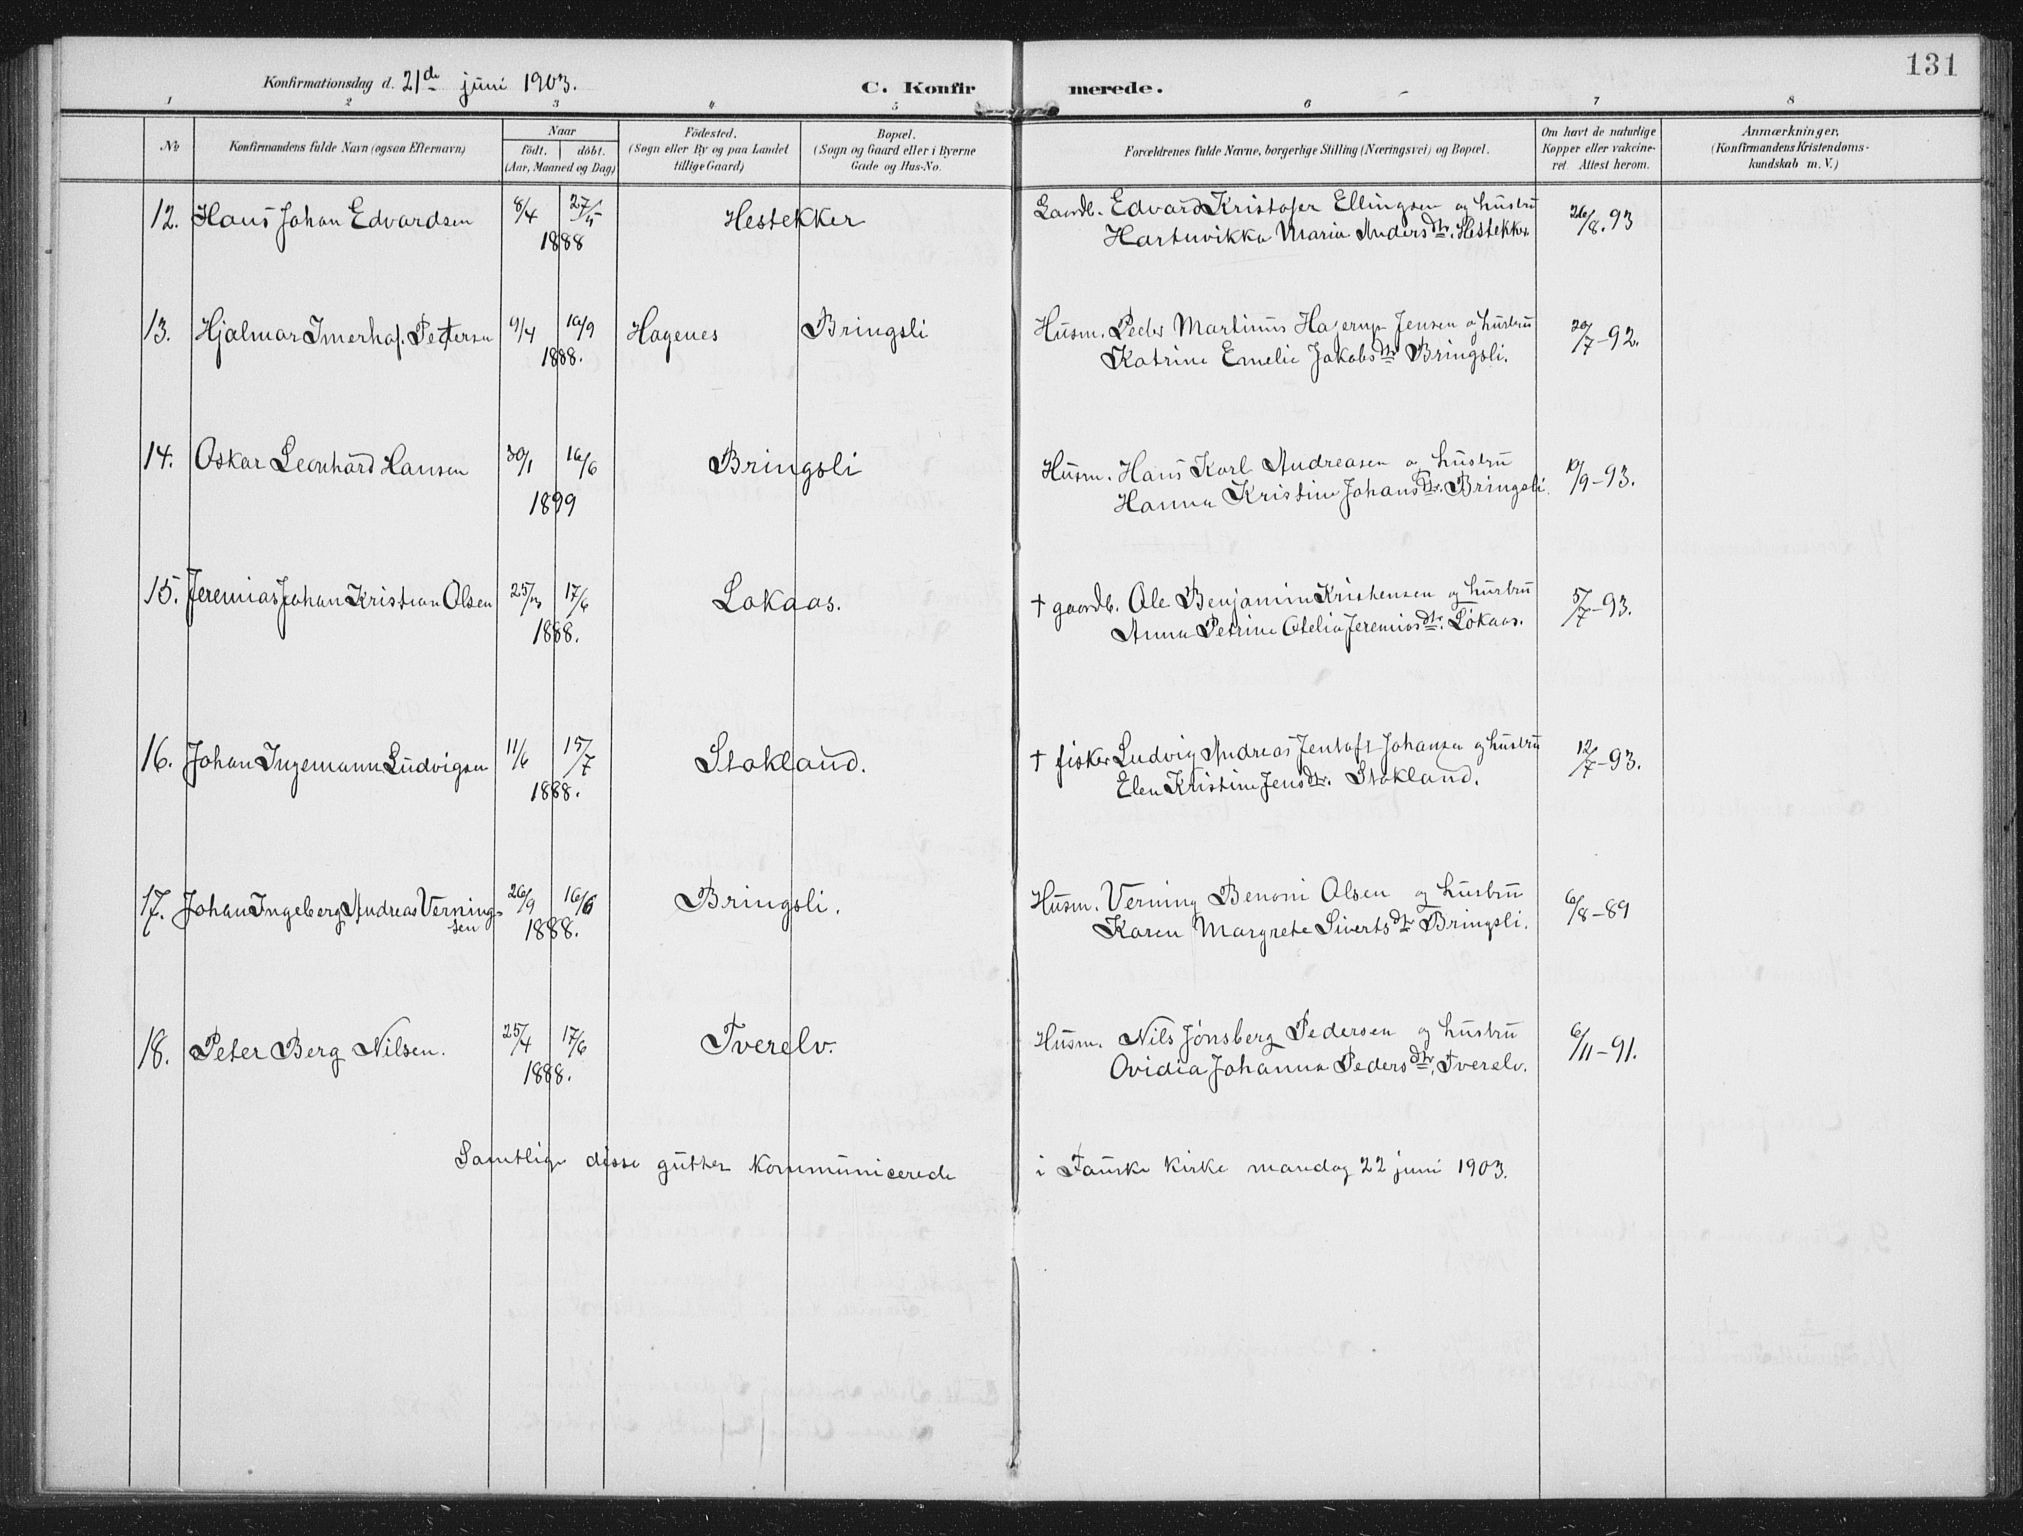 131
Konfirmationsdag d. 21de juni 1903.
C. Konfirmerede.
1 2 3 4 5 6 7 8
No
Konfirmandens fulde Navn (ogsaa Efternavn)
Naar
födt. döbt.
(Aar, Maaned og Dag)
Födested.
(Sogn eller By og paa Landet
tillige Gaard)
Bopæl.
(Sogn og Gaard eller i Byerne
Gade og Hus-No.
Forældrenes fulde Navne, borgerlige Stilling (Næringsvei) og Bopæl.
Om havt de naturlige
Kopper eller vakcine-
ret Attest herom.
Anmærkninger.
(Konfirmandens Kristendoms-
kundskab m. V.)
12. Hans Johan Edvardsen 8/4 27/5 Hestekker Gaardb. Edvard Kristofer Ellingsen og hustru 26/8.93
1888 Hartuvikka Maria Andersdtr. Hestekker
13. Hjalmar Imerhof. Pettersen 9/4 16/9 Hagenes Bringsli Husm. Peder Martinus Hagerup Jensen og hustru 20/7-92.
1888. Katrine Emelie Jakobsdtr Bringsli.
14. Oskar Leonhard Hansen 30/1 16/6 Bringsli Husm. Hans Karl Andreasen og hustru 10/9-93.
1899 Hanna Kristine Johansdtr. Bringsli.
15. Jeremias Johan Kristian Olsen 25/3 17/6 Lokaas. † gaardb. Ole Benjamin Kristensen og hustru 5/7-93.
1888. Anna Petrine Otelia Jeremiasdtr. Lökaas.
16. Johan Ingemann Ludvigsen 11/6 15/7 Stokland. † fisker Ludvig Andreas Jentoft Johansen og hustru 12/7-93.
1888. Elen Kristine Jensdtr. Stokland.
17. Johan Ingeberg Andreas Vernings- 26/9 16/6 Bringsli. Husm. Verning Benoni Olsen og hustru 6/8-89
sen 1888. Karen Margrete Sivertsdtr Bringsli.
18. Peter Berg Nilsen. 25/4 17/6 Tverelv. Husm. Nils Jønsberg Pedersen og hustru 6/11-91.
1888. Ovidia Johanna Pedersdtr, Tverelv.
Samtlige disse gutter kommunicerede i Fauske kirke mandag 22 juni 1903.